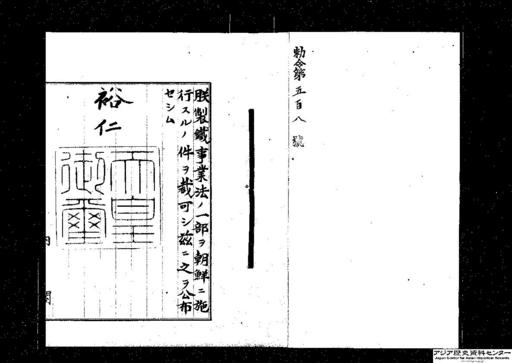 勅令第五百八號
朕製鐵事業法ノ一部ヲ朝鮮ニ施
行スルノ件ヲ裁可シ玆ニ之ヲ公布
セシム
裕仁
天皇
御璽
内閣
アジア歴史資料センター
Japan Center for Asian Historical Records